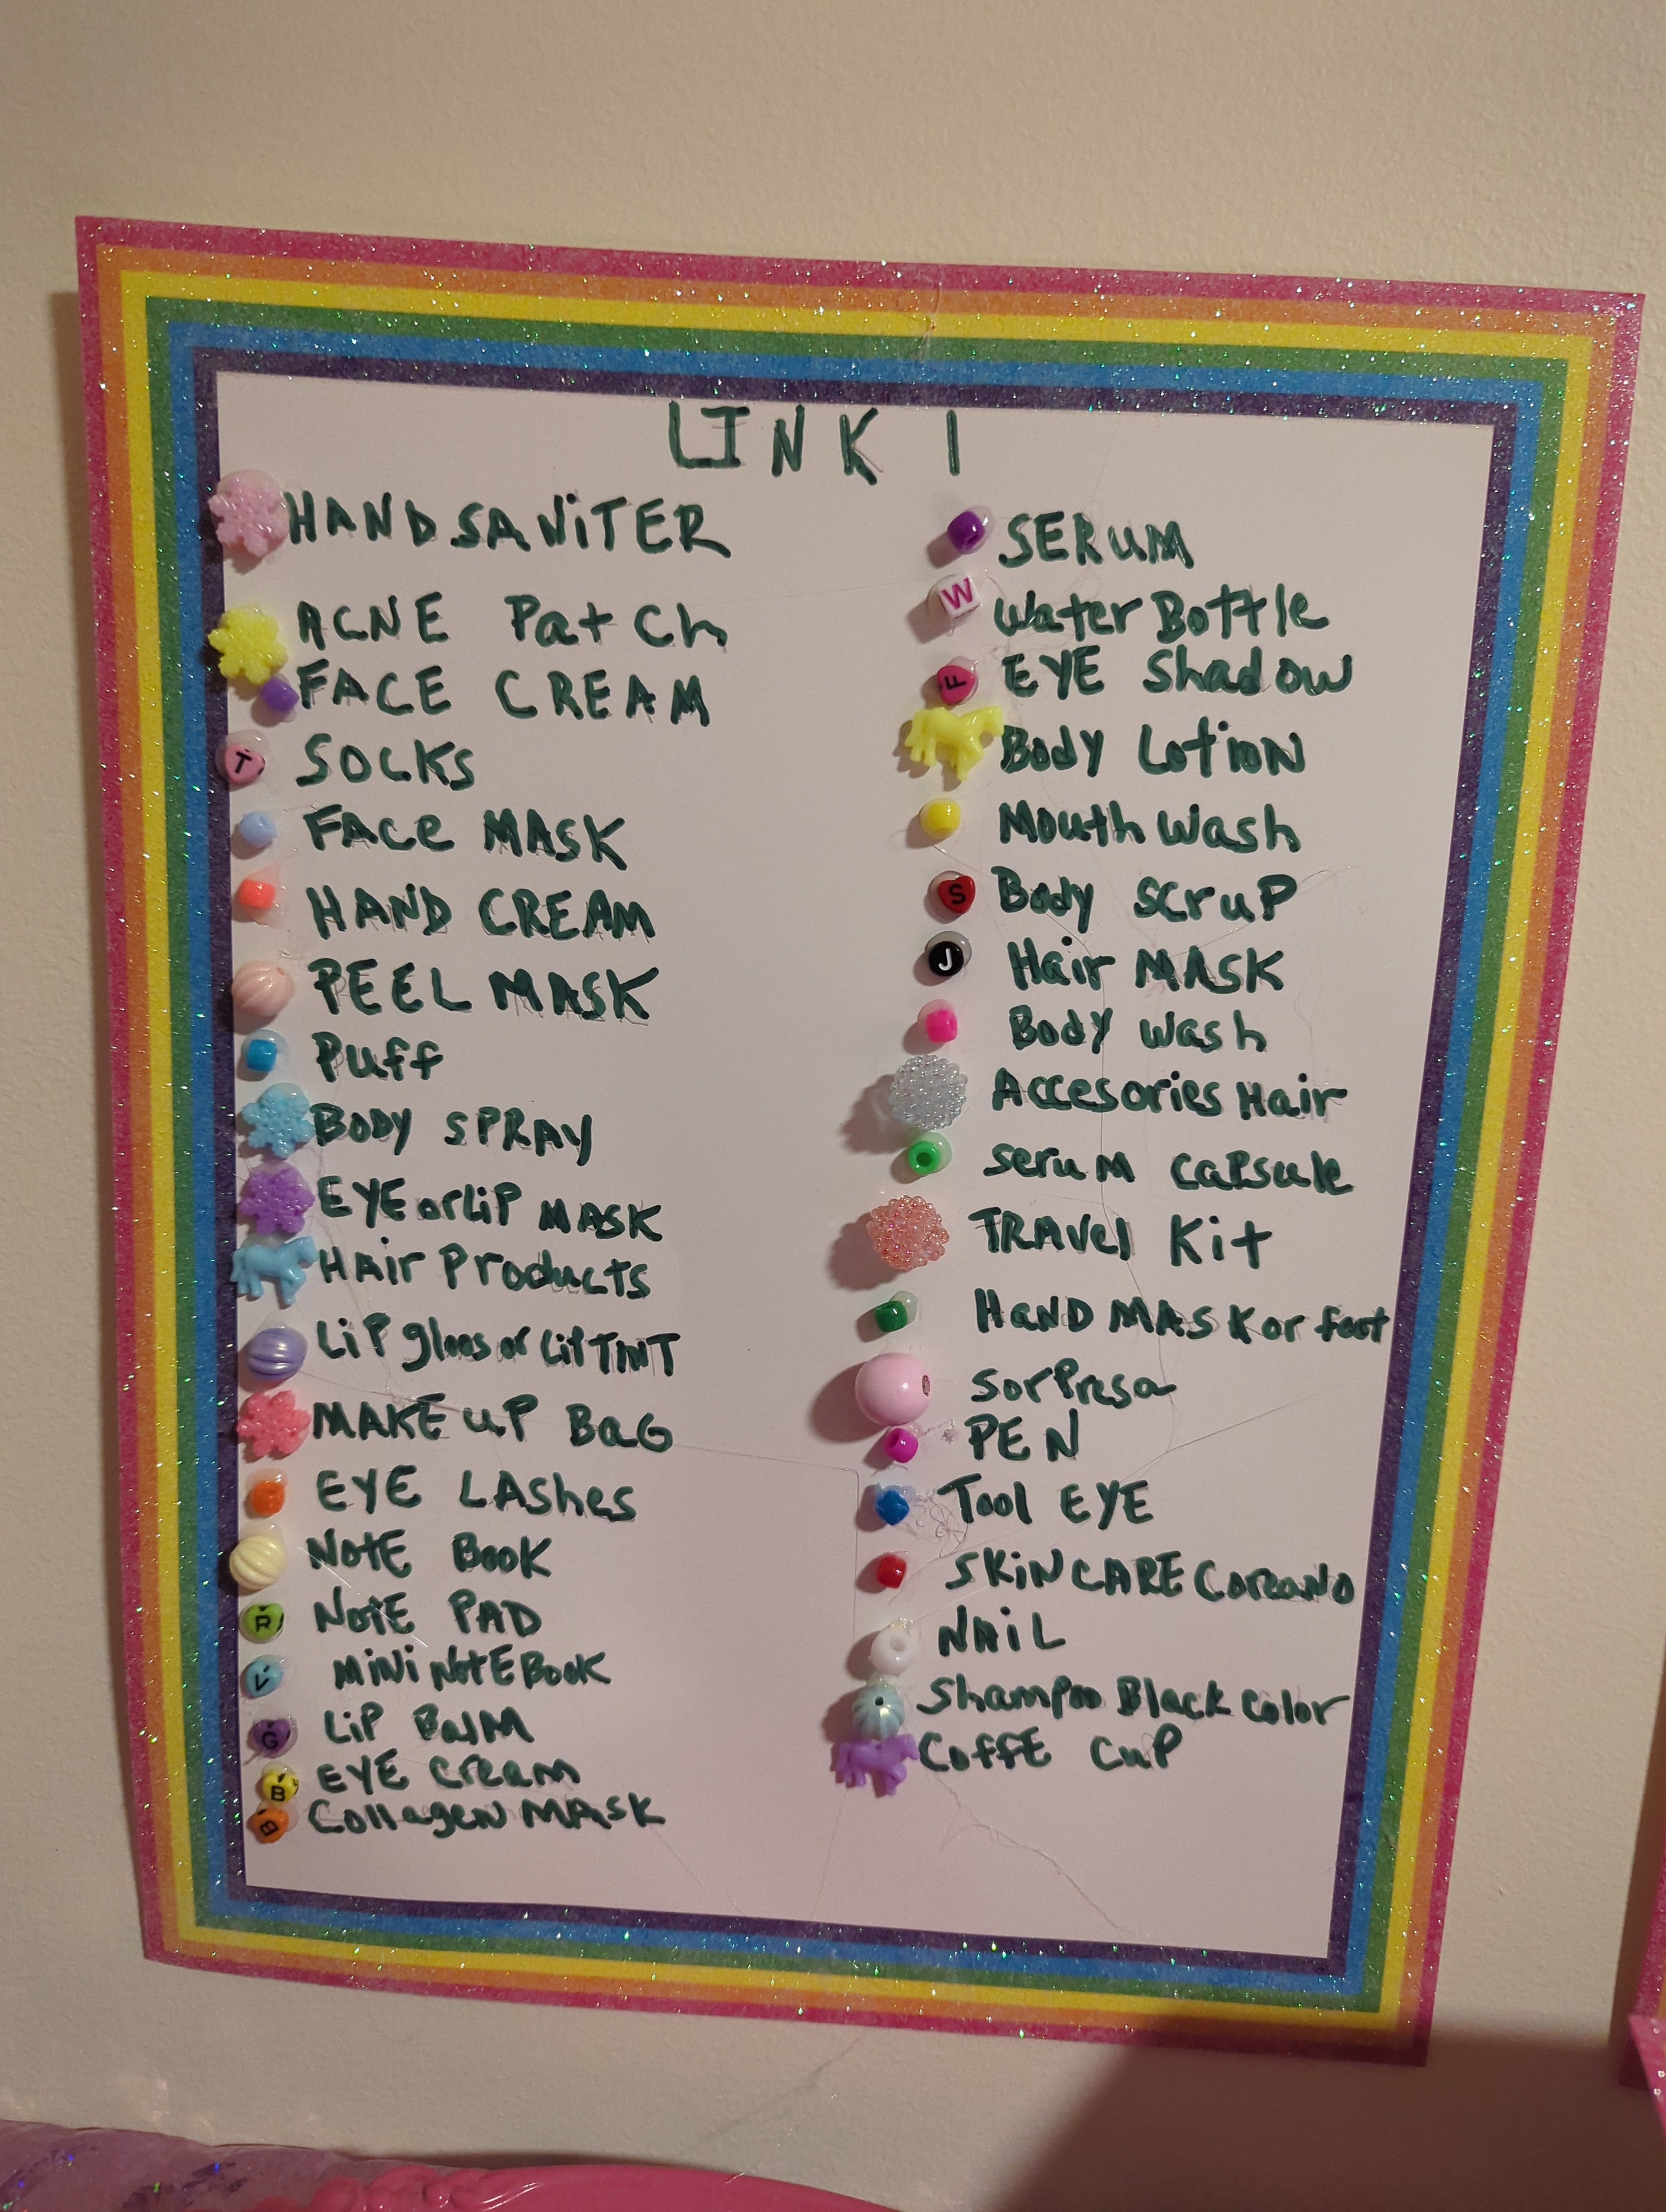 LINK 1
HAND SANITER
ACNE Patch
FACE CREAM
T SOCKS
FACE MASK
HAND CREAM
PEEL MASK
Puff
BODY SPRAY
EYE or LiP MASK
HAir Products
LiP gloos or LiP TINT
MAKE uP BaG
EYE LAshes
NotE Book
R NotE PAD
V MiNi NotE Book
G LiP BalM
B EYE Cream
B CollageN MAsK
SERuM
W Water Bottle
F EYE Shadow
Body LotioN
Mouth Wash
S Body ScruP
J Hair MASK
Body wash
Accesories Hair
seruM caPsule
TRAvel Kit
HaND MASK or foot
SorPresa
PEN
Tool EYE
SKiN CARE CoreaNo
NAiL
Shampoo Black Color
CoffE CuP